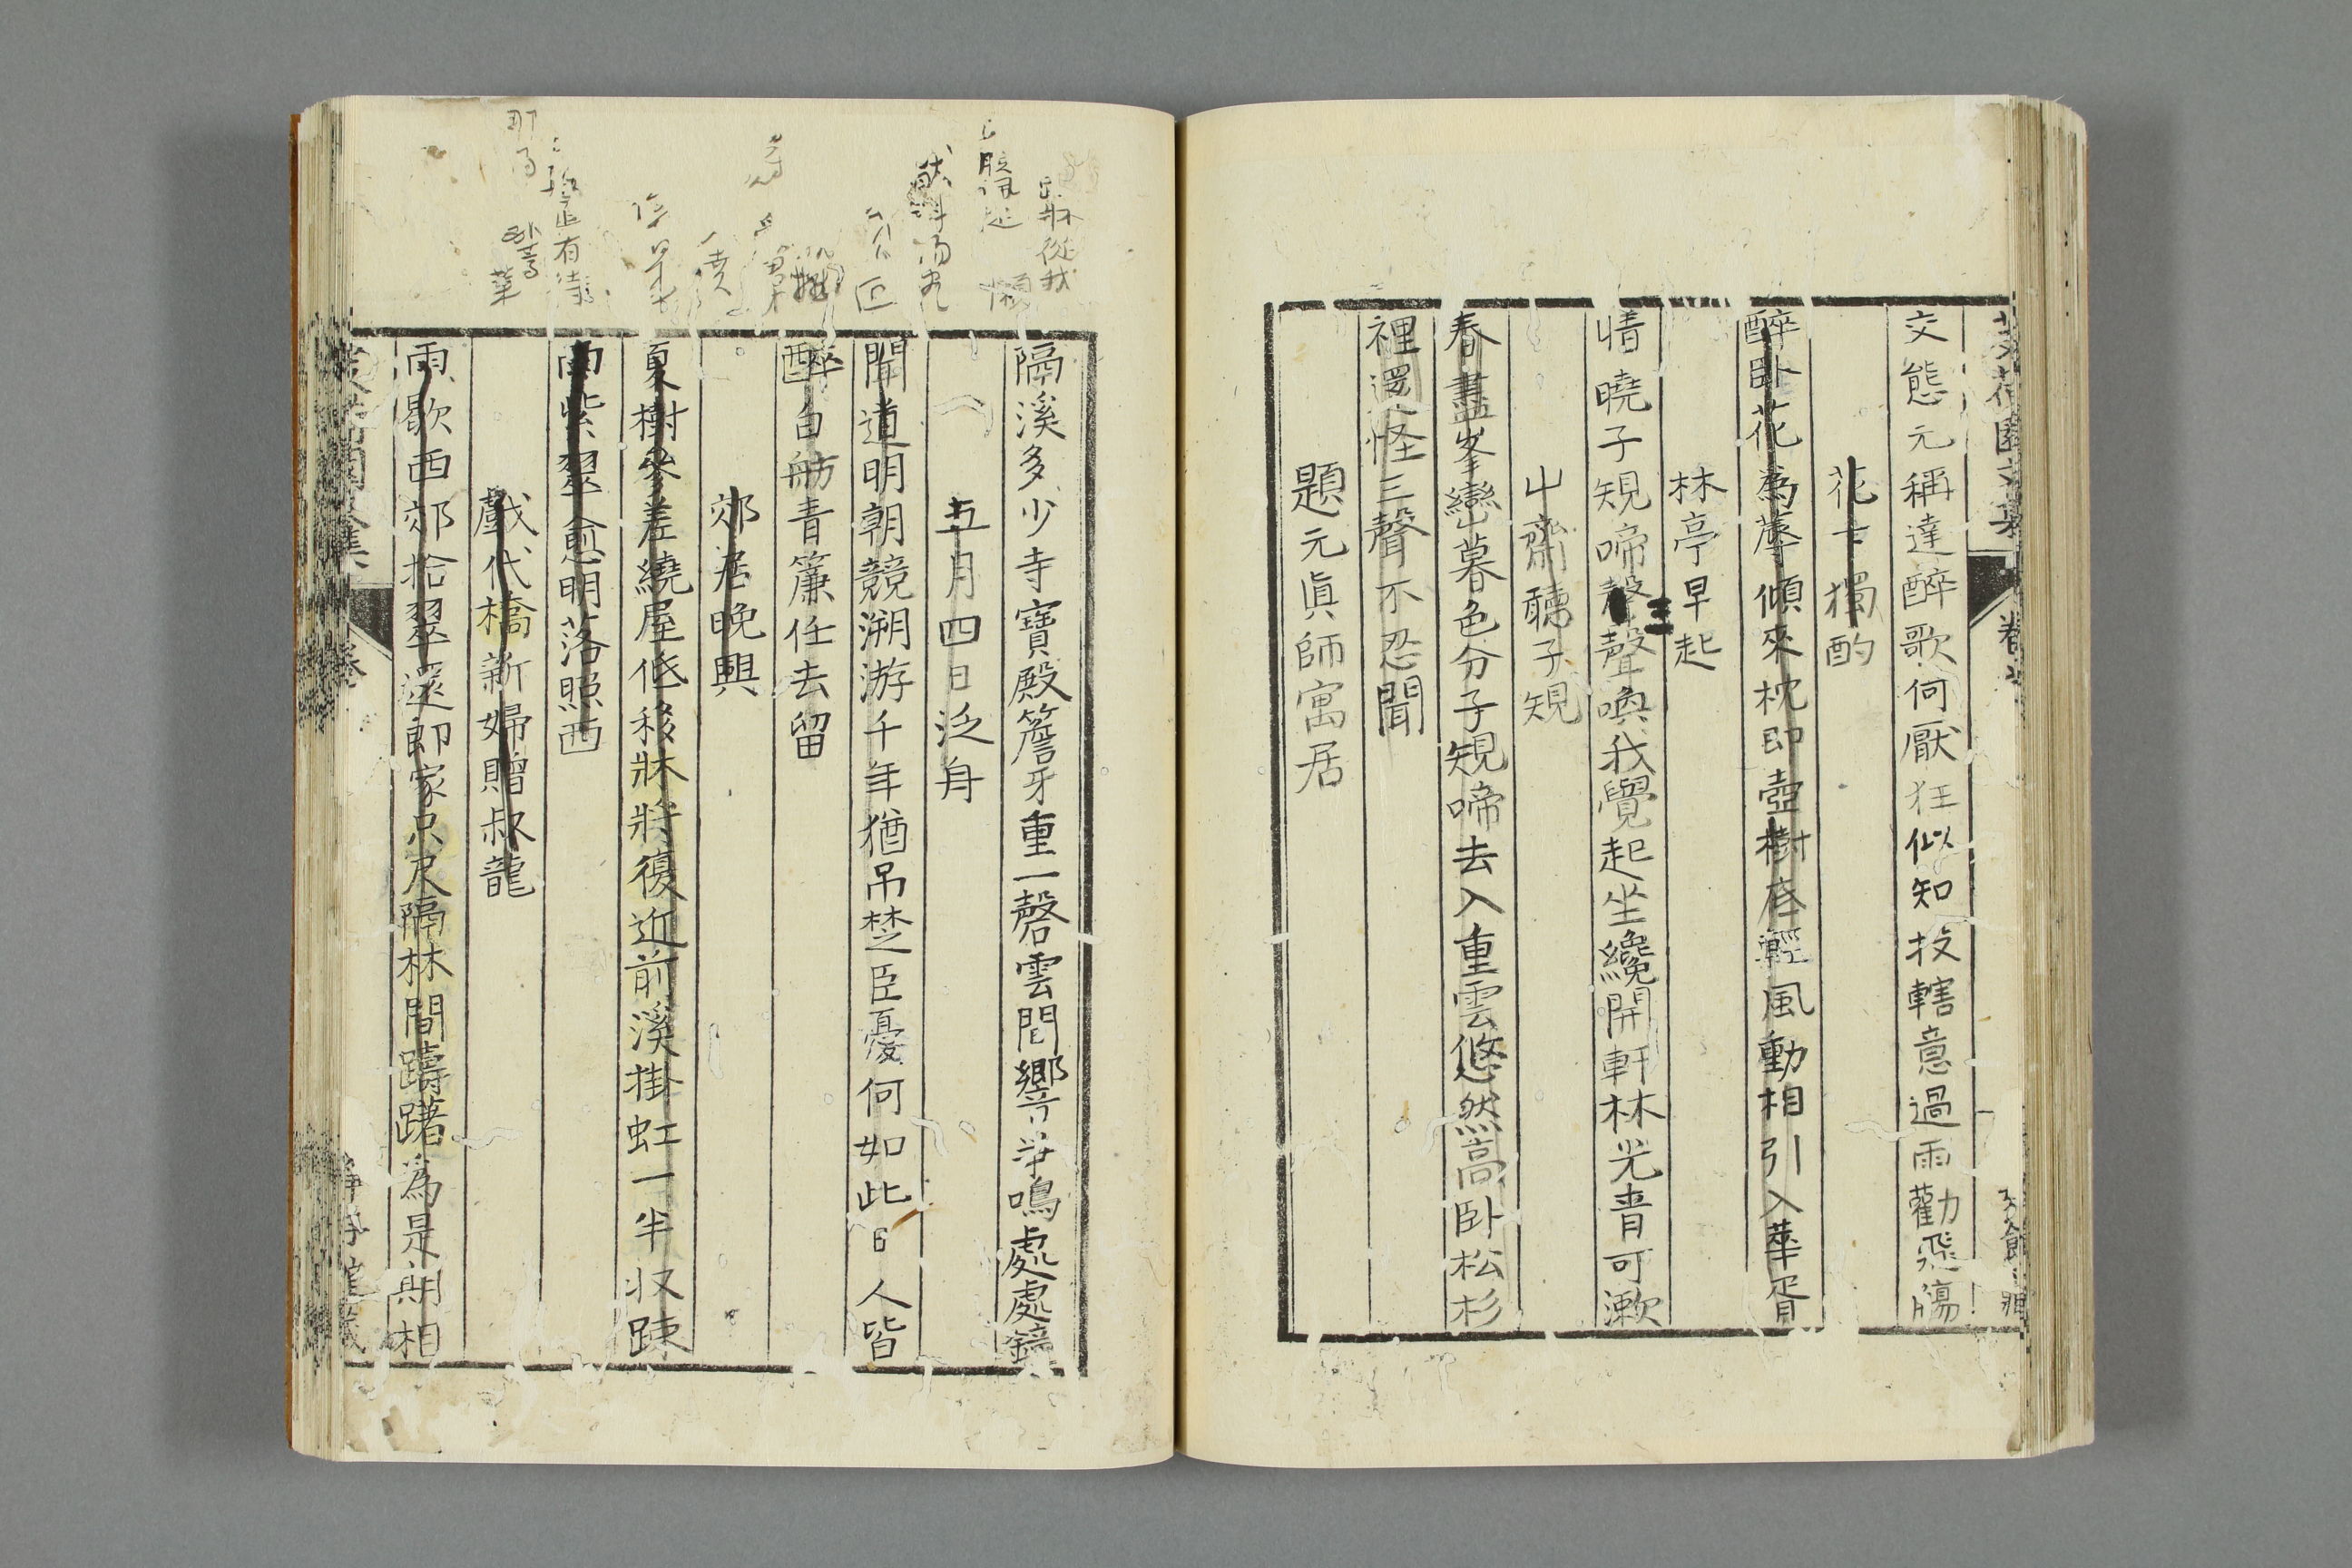 交態元稱達醉歌何厭狂似知投轄意過雨勸飛觴
花 獨酌
醉臥花為蓐傾來枕即壺樹底輕風動相引入華胥
林亭早起
情曉子規啼聲聲喚我覺起坐纔開軒林光青可漱
山齋聽子規
春盡峯巒暮色分子規啼去入重雲悠然高臥松杉
裡還怪三聲不忍聞
題元眞師寓居
隔溪多少寺寶殿簷牙重一磬雲間響爭鳴處處鐘
五月四日泛舟
聞道明朝競溯游千年猶吊楚臣憂何如此日人皆
醉白舫青簾任去留
郊居晚興
夏樹參差繞屋低移牀將復近前溪掛虹一半收踈
雨紫翠愈明落照西
戲代橋新婦贈叔龍
雨歇西郊拾翠還郎家只尺隔林間躊躇為是期相
牀從我
懶
有待